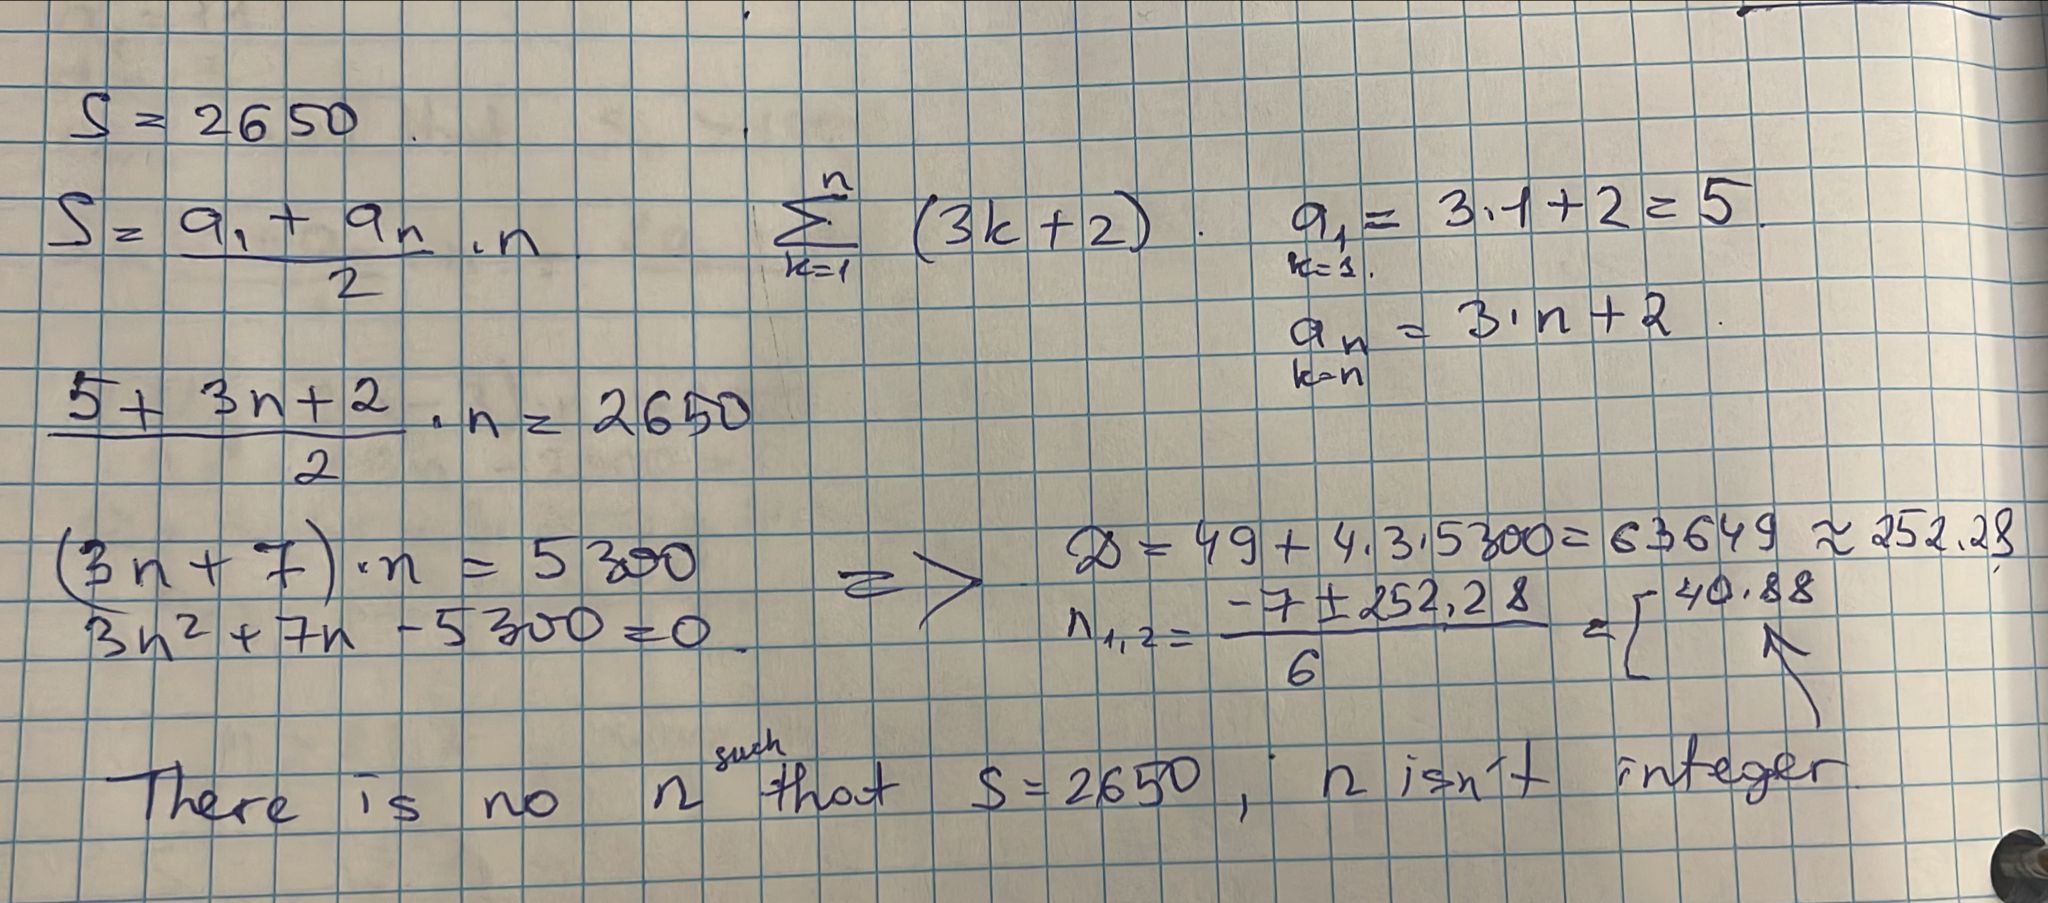 S = 2650.
S = (a₁ + aₙ)/2 · n.
∑ₖ₌₁ⁿ (3k + 2).
a₁ = 3·1 + 2 = 5.
k=1.
aₙ = 3·n + 2.
k=n
(5 + 3n + 2)/2 · n = 2650
(3n + 7)·n = 5300
3n² + 7n - 5300 = 0.
=> D = 49 + 4·3·5300 = 63649 ≈ 252.28
n₁,₂ = (-7 ± 252.28)/6 = [ 40.88
There is no n such that S = 2650, n isn't integer